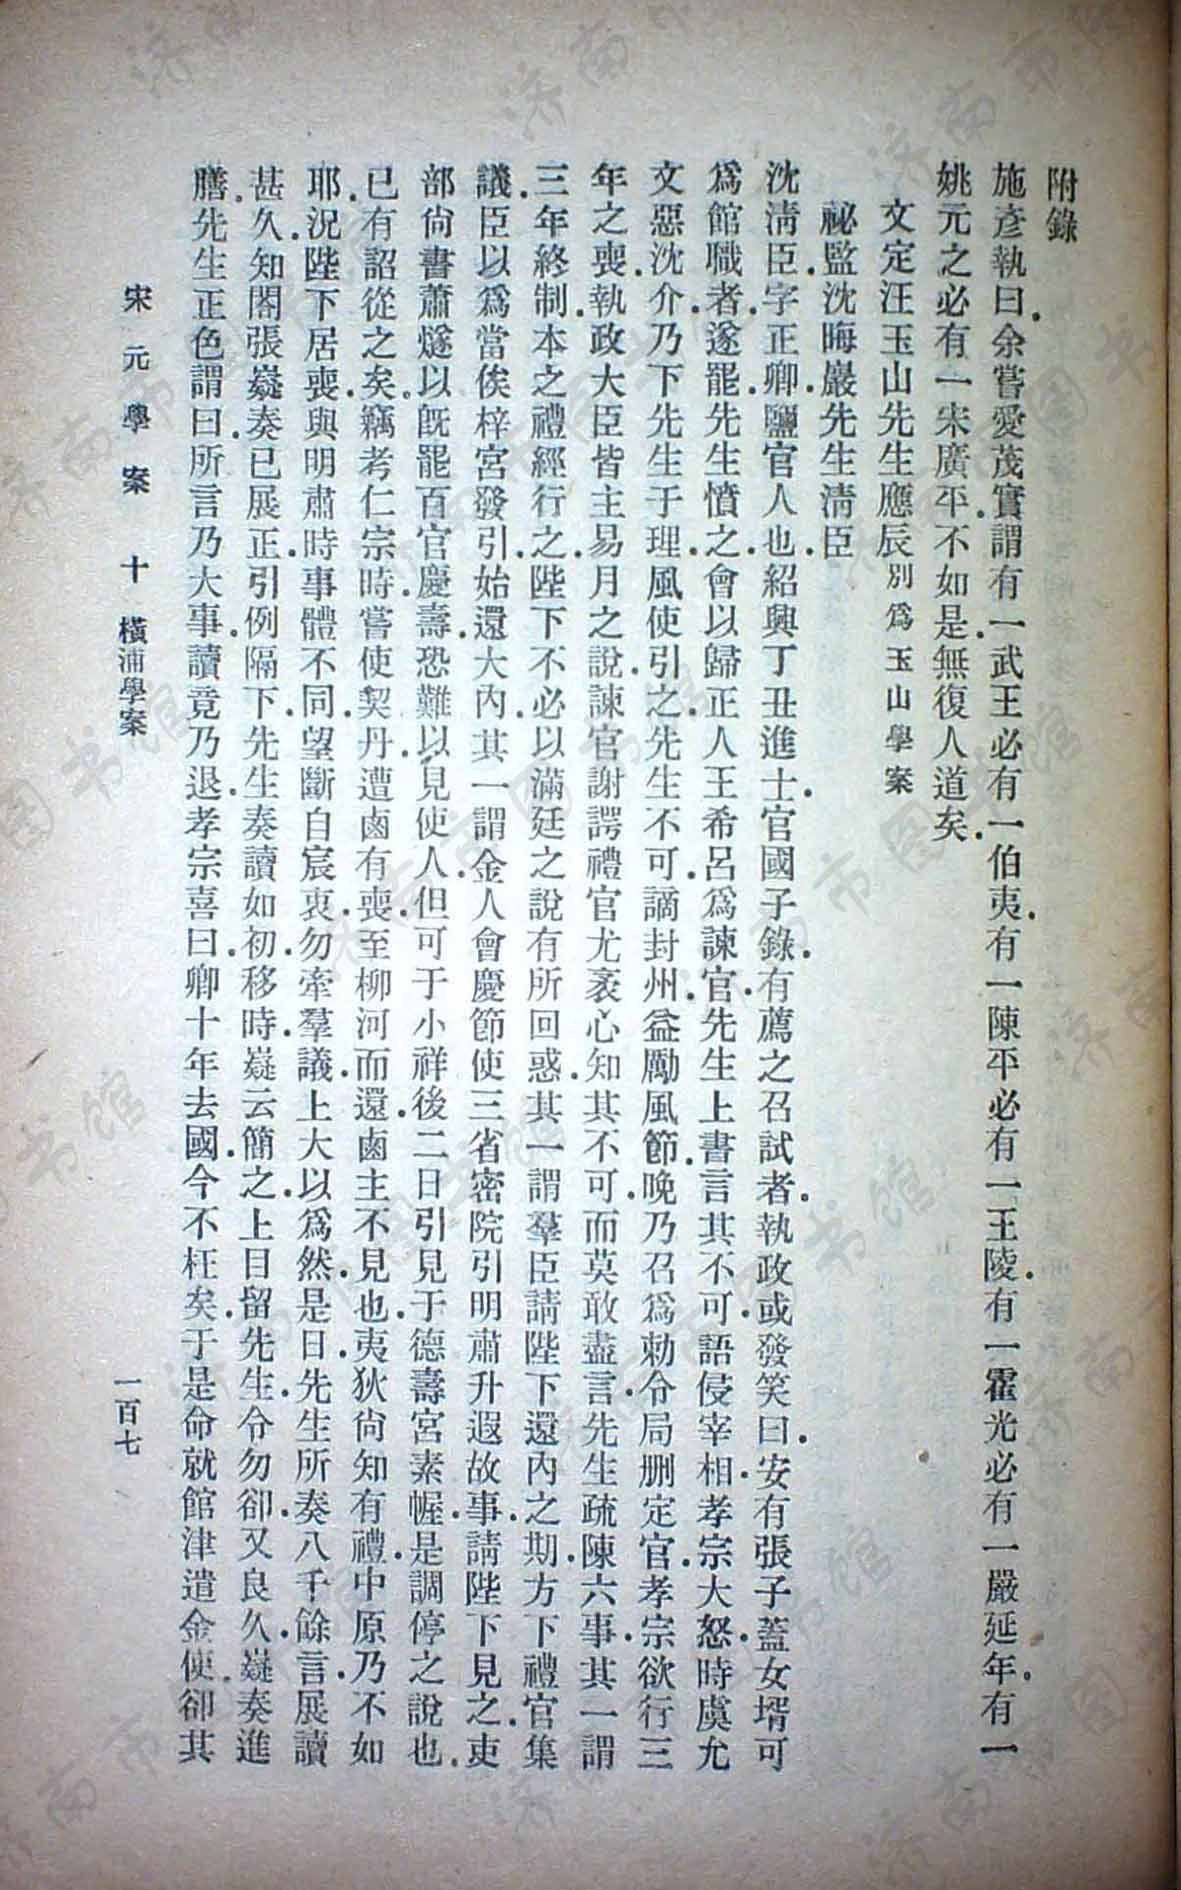 附錄
施彥執曰.余嘗愛茂實謂有一武王.必有一伯夷.有一陳平.必有一王陵.有一霍光.必有一嚴延年.有一
姚元之.必有一宋廣平.不如是.無復人道矣.
文定汪玉山先生應辰別爲玉山學案
祕監沈晦巖先生淸臣
沈淸臣.字正卿.鹽官人也.紹興丁丑進士.官國子錄.有薦之召試者.執政或發笑曰.安有張子蓋女壻可
爲館職者.遂罷.先生憤之.會以歸正人王希呂爲諫官.先生上書言其不可.語侵宰相.孝宗大怒.時虞允
文惡沈介.乃下先生于理.風使引之.先生不可.謫封州.益勵風節.晚乃召爲勅令局删定官.孝宗欲行三
年之喪.執政大臣皆主易月之說.諫官謝諤禮官尤袤心知其不可.而莫敢盡言.先生疏陳六事.其一謂
三年終制.本之禮經.行之陛下.不必以滿廷之說有所回惑.其一謂羣臣請陛下還內之期.方下禮官集
議.臣以爲當俟梓宮發引.始還大內.其一謂金人會慶節使.三省密院引明肅升遐故事.請陛下見之.吏
部尙書蕭燧以旣罷百官慶壽.恐難以見使人.但可于小祥後二日引見于德壽宮素幄.是調停之說也.
已有詔從之矣.竊考仁宗時.嘗使契丹.遭鹵有喪.至柳河而還.鹵主不見也.夷狄尙知有禮.中原乃不如
耶.況陛下居喪.與明肅時事體不同.望斷自宸衷.勿牽羣議.上大以爲然.是日.先生所奏八千餘言.展讀
甚久.知閤張嶷奏已展正引例隔下.先生奏讀如初.移時.嶷云.簡之.上目留先生.令勿卻.又良久.嶷奏進
膳.先生正色謂曰.所言乃大事.讀竟乃退.孝宗喜曰.卿十年去國.今不枉矣.于是命就館津遣金使.卻其
宋元學案 十 橫浦學案 一百七